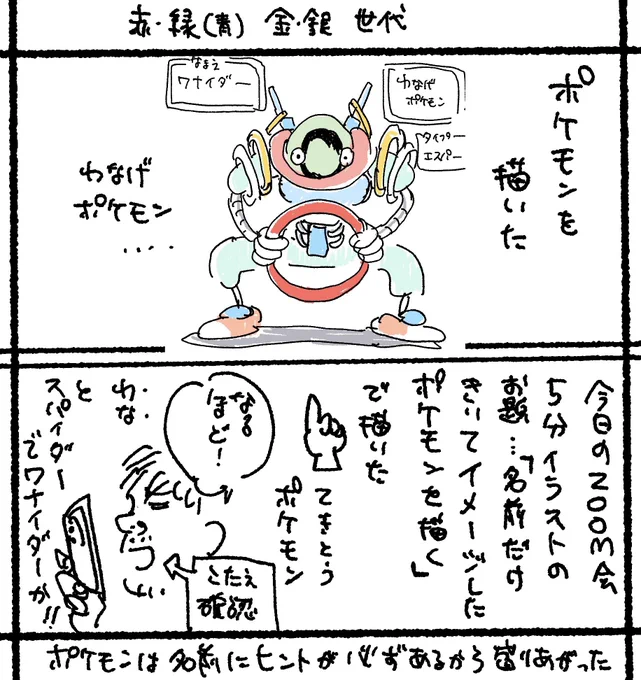 赤・緑(青) 金・銀 世代
ポケモンを
描いた
わなげ
ポケモン
タイプター
エスパー
なまえ
ワナイダー
わなげ
ポケモン
....
今日のZOOM会
5分イラストの
お題…「名前だけ
きいてイメージした
ポケモンを描く」
で描いた
てきとう
ポケモン
なる
ほど!
こたえ
確認
わな
と
スパイダー
でワナイダーか!!
ポケモンは名前にヒントが必ずあるから盛りあがった